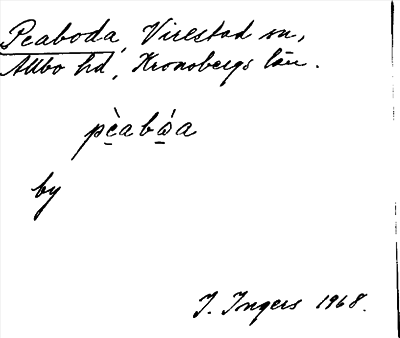 Peaboda, Virestad sn,
Allbo hd, Kronobergs län.
pè̖abώ̖a
by
I. Ingers 1968.